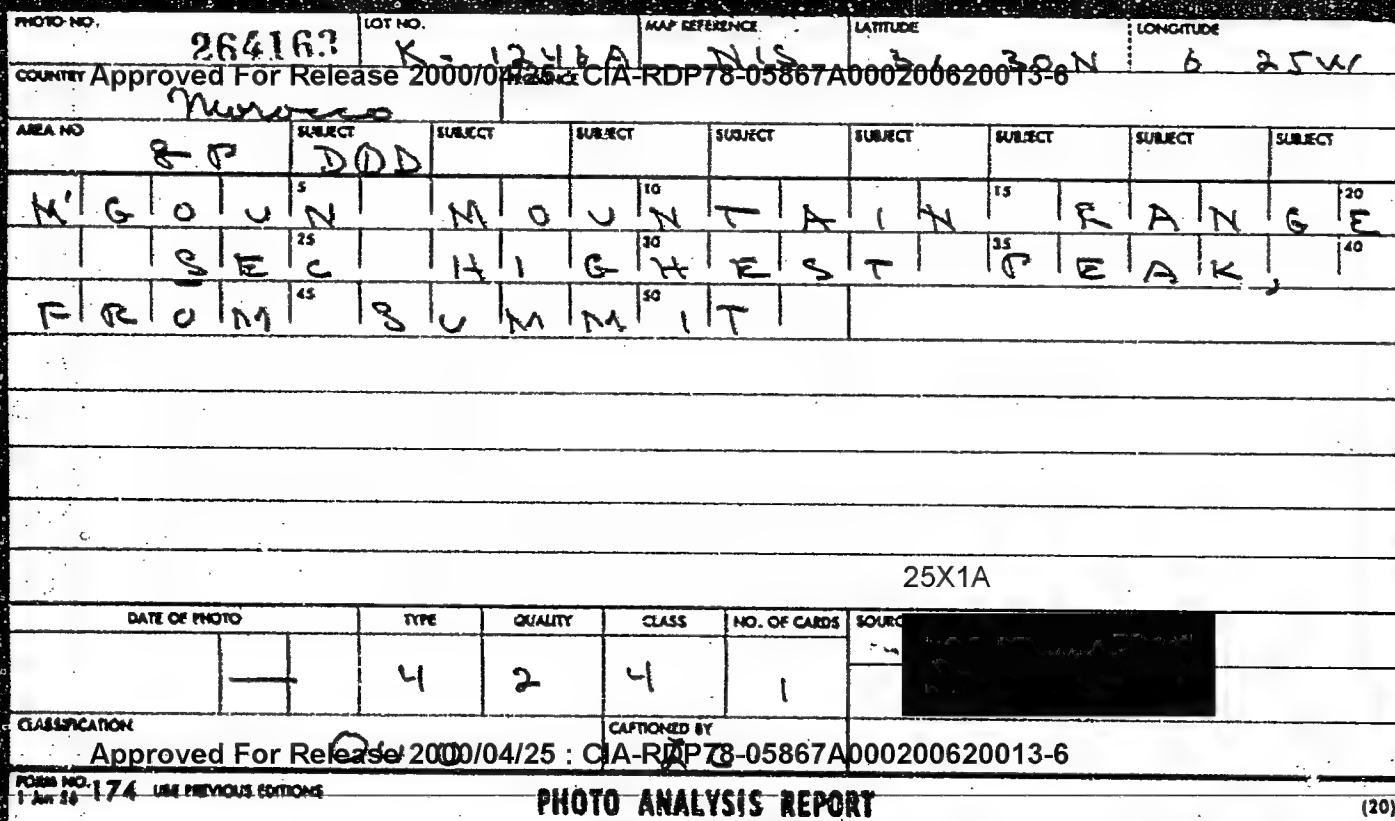 PHOTO NO. LOT NO. MAP REFERENCE LATITUDE LONGITUDE
264163 K-1246A NIS 31 30N 6 25W
COUNTRY Approved For Release 2000/04/25 : CIA-RDP78-05867A000200620013-6
Morocco
AREA NO SUBJECT SUBJECT SUBJECT SUBJECT SUBJECT SUBJECT SUBJECT SUBJECT
8-P DDD
5 10 15 20
M'GOUN MOUNTAIN RANGE
25 30 35 40
SEC HIGHEST PEAK,
45 50
FROM SUMMIT
25X1A
DATE OF PHOTO TYPE QUALITY CLASS NO. OF CARDS SOURC
— 4 2 4 1
CLASSIFICATION CAPTIONED BY
Approved For Release 2000/04/25 : CIA-RDP78-05867A000200620013-6
FORM NO. 174 USE PREVIOUS EDITIONS PHOTO ANALYSIS REPORT (20)
1 Jun